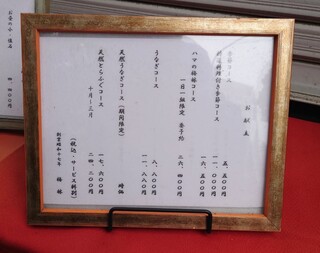 お献立
季節コース
五、五〇〇円
鍋料理付き季節コース
一一、〇〇〇円
一六、五〇〇円
ハマの梅林コース
一日一組限定 要予約
二六、四〇〇円
うなぎコース
八、八〇〇円
一一、八八〇円
天然うなぎコース(期間限定)
時価
天然とらふぐコース
十月〜三月
一七、六〇〇円
二四、二〇〇円
(税込・サービス料別)
創業昭和十七年 梅林